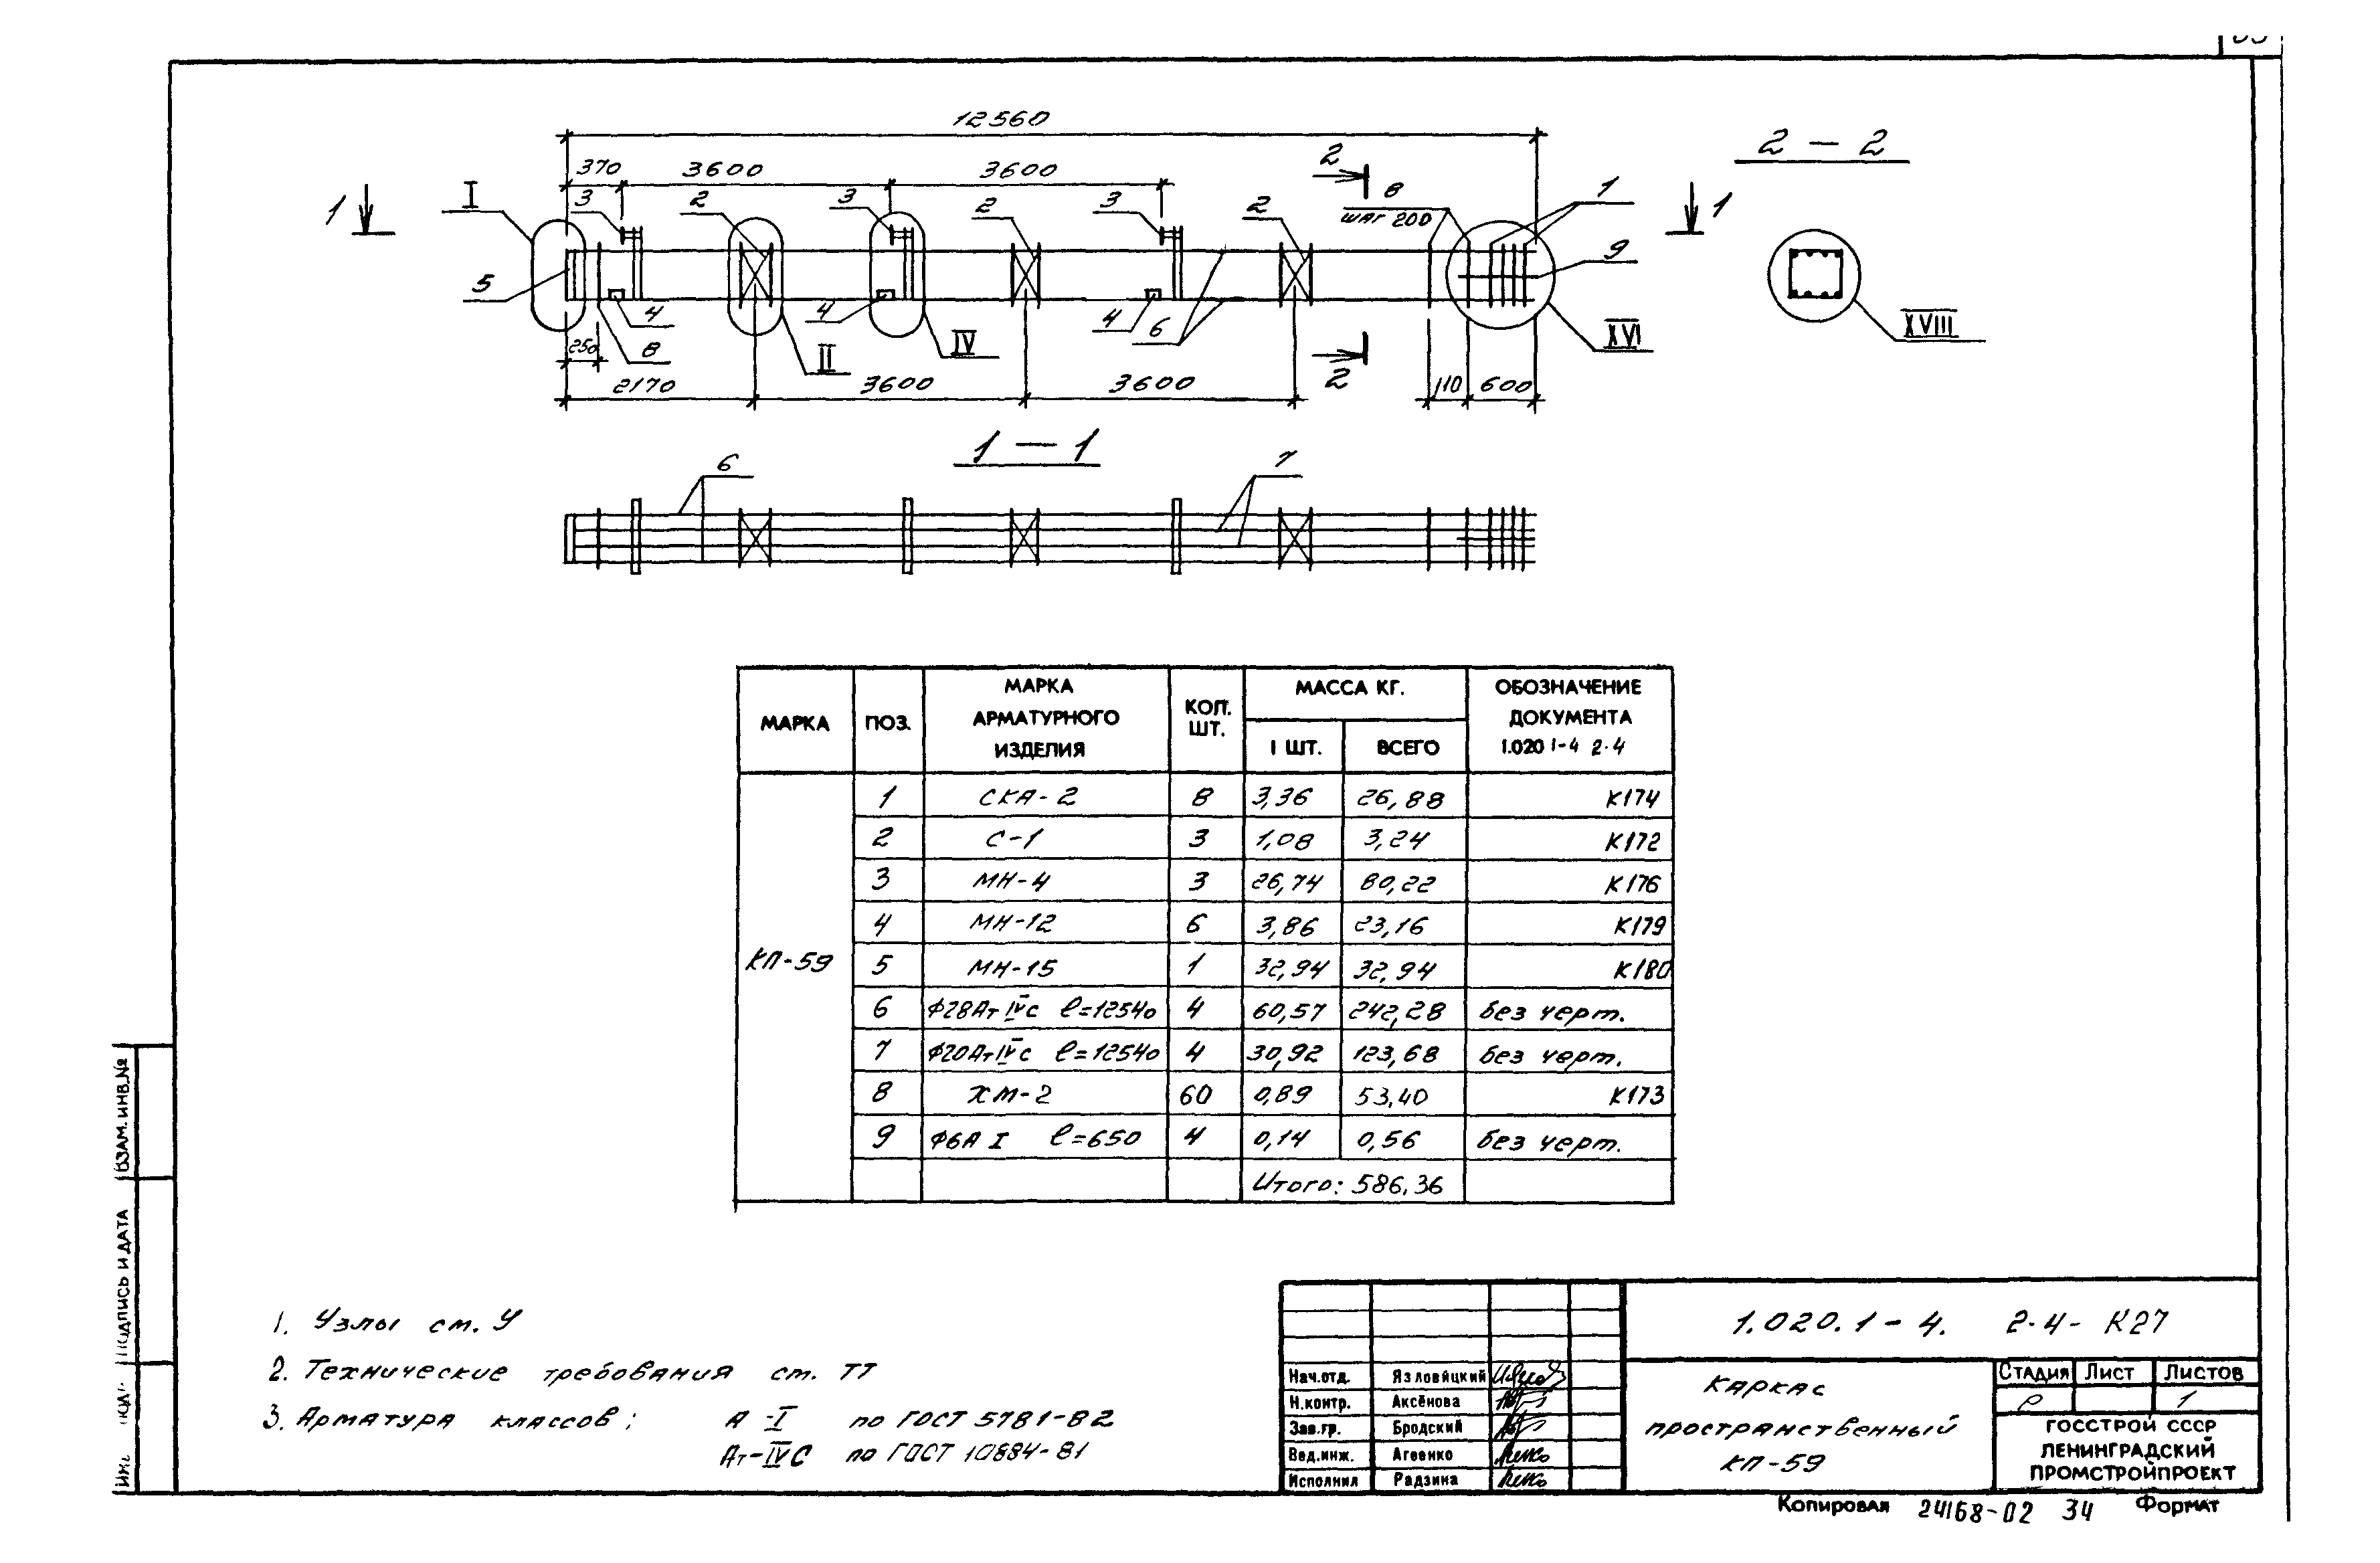 12560
2 – 2
370 3600 3600
2
1 I 3 2 3 2 3 2 8 1 1
шаг 200
5 9
4 4 4 6
XVI XVIII
250 8 II IV
2
2170 3600 3600 110 600
1 – 1
6 7
МАРКА ПОЗ. МАРКА АРМАТУРНОГО ИЗДЕЛИЯ КОЛ. ШТ. МАССА КГ. ОБОЗНАЧЕНИЕ ДОКУМЕНТА 1.020 1-4 2-4
1 ШТ. ВСЕГО
КП-59
1 СКА-2 8 3,36 26,88 К174
2 С-1 3 1,08 3,24 К172
3 МН-4 3 26,74 80,22 К176
4 МН-12 6 3,86 23,16 К179
5 МН-15 1 32,94 32,94 К180
6 Ф28АтIVС ℓ=12540 4 60,57 242,28 без черт.
7 Ф20АтIVС ℓ=12540 4 30,92 123,68 без черт.
8 ХМ-2 60 0,89 53,40 К173
9 Ф6А I ℓ=650 4 0,14 0,56 без черт.
Итого: 586,36
1. Узлы см. У
2. Технические требования см. ТТ
3. Арматура классов: А-I по ГОСТ 5781-82
Ат-IVС по ГОСТ 10884-81
ВЗАМ. ИНВ.№
ПОДПИСЬ И ДАТА
1.020.1-4. 2-4-К27
Нач.отд. Язловицкий
Н.контр. Аксёнова
Зав.гр. Бродский
Вед.инж. Агеенко
Исполнил Радзина
Каркас
пространственный
КП-59
Стадия Лист Листов
Р 1
ГОССТРОЙ СССР
ЛЕНИНГРАДСКИЙ
ПРОМСТРОЙПРОЕКТ
Копировал 24168-02 34 Формат